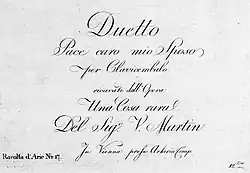 Duetto
Pace caro mio Sposo
per Clavicembalo
ricavato dall' Opera
Una Cosa rara
Del Sigr. V. Martin
In Vienna presso Artaria Comp.
Racolta d'Arie No 17.